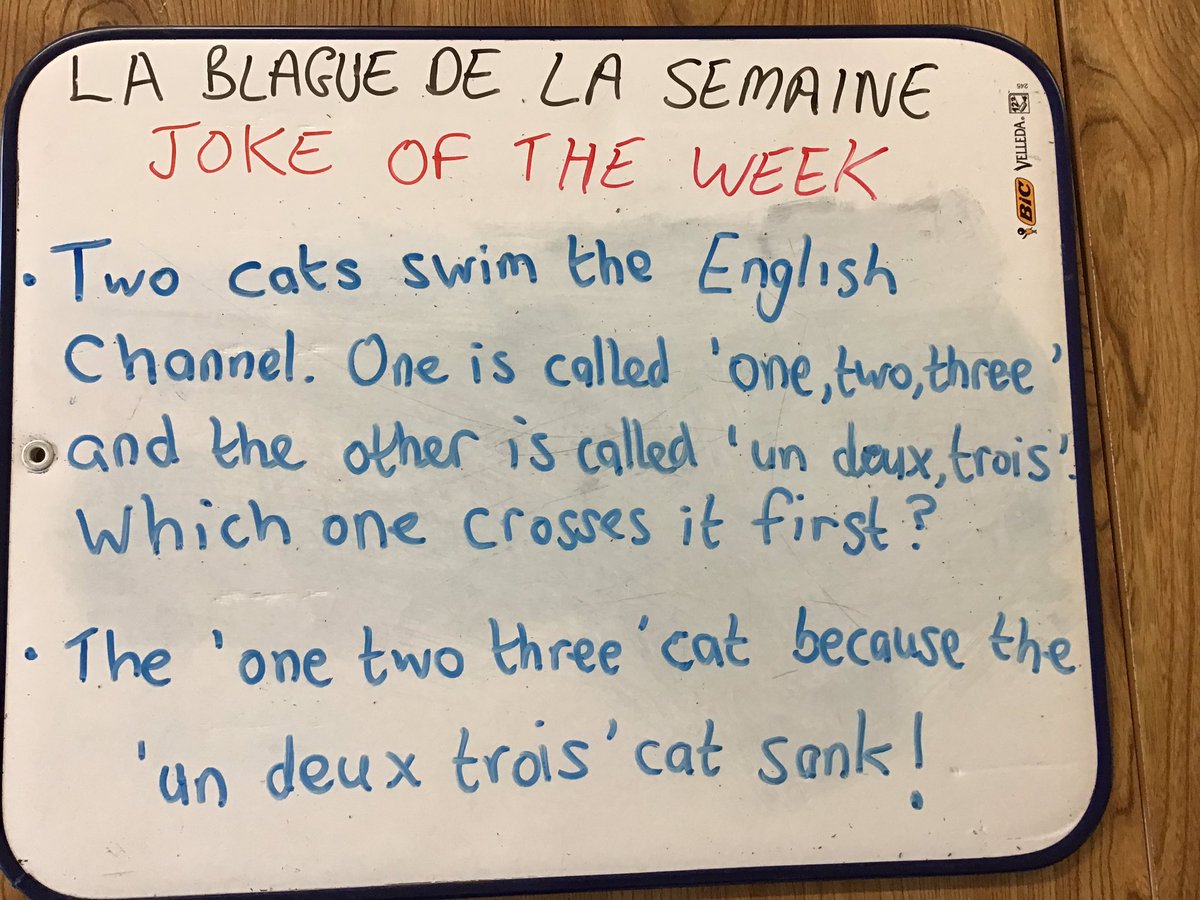 LA BLAGUE DE LA SEMAINE
JOKE OF THE WEEK
245
BIC VELLEDA®
• Two cats swim the English
Channel. One is called 'one,two,three'
and the other is called 'un deux,trois'.
Which one crosses it first?
• The 'one two three' cat because the
'un deux trois' cat sank!